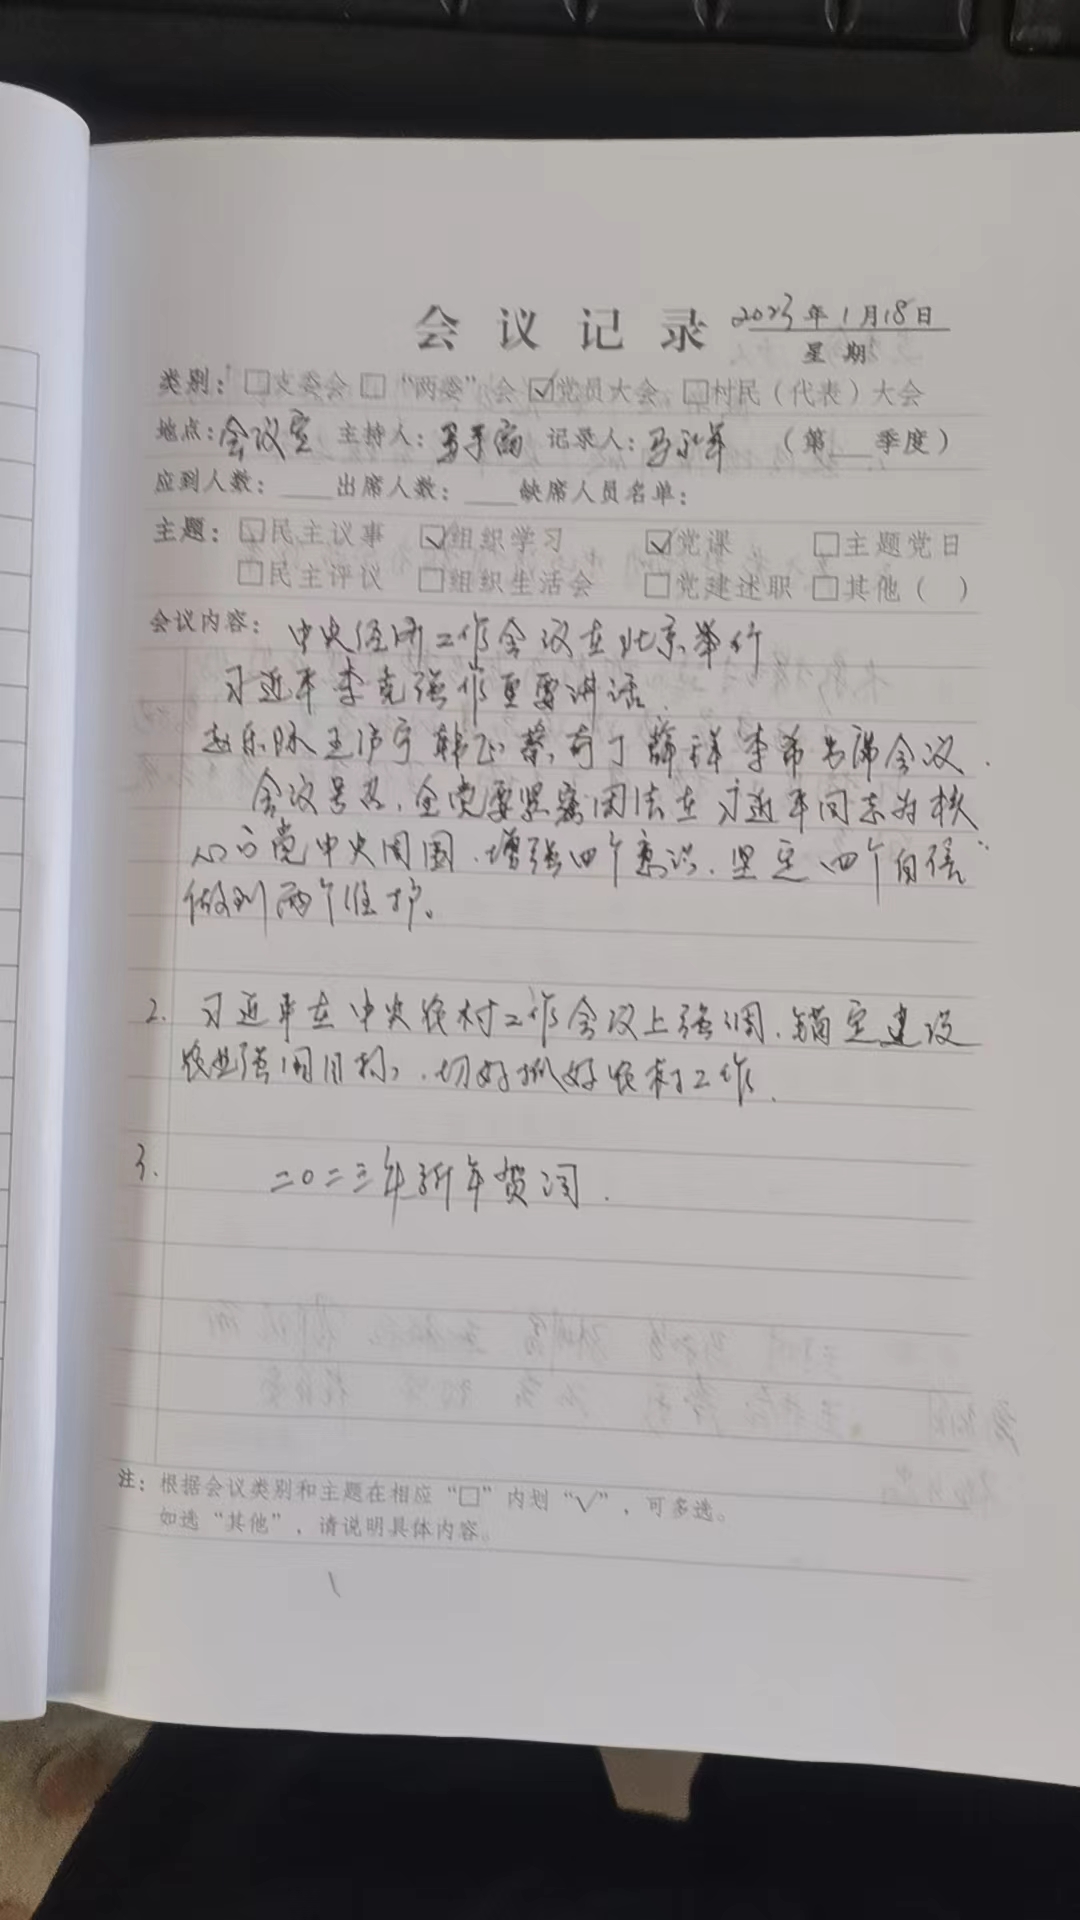 会议记录 2023年1月18日
星期
类别：□支委会 □“两委”会 ☑党员大会 □村民（代表）大会
地点：会议室 主持人： 记录人：马永年 （第___季度）
应到人数：____出席人数：____缺席人员名单：
主题：□民主议事 ☑组织学习 ☑党课 □主题党日
□民主评议 □组织生活会 □党建述职 □其他（ ）
会议内容：中央经济工作会议在北京举行
习近平李克强作重要讲话.
赵乐际王沪宁韩正蔡奇丁薛祥李希出席会议.
会议号召,全党要紧密团结在习近平同志为核
心的党中央周围.增强四个意识.坚定四个自信"
做到两个维护。
2. 习近平在中央农村工作会议上强调.锚定建设
农业强国目标,.切好抓好农村工作.
3. 二〇二三年新年贺词.
注：根据会议类别和主题在相应“□”内划“√”，可多选。
如选“其他”，请说明具体内容。